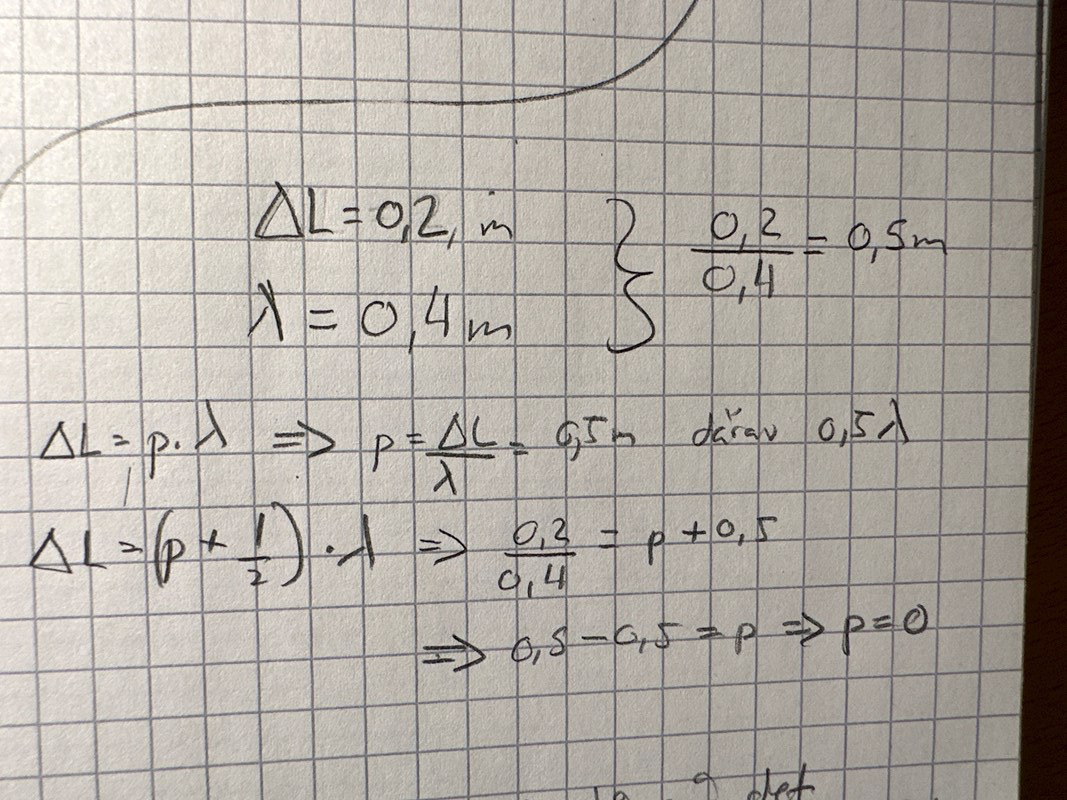 ΔL = 0,2, m } 0,2/0,4 = 0,5m
λ = 0,4 m
ΔL = p · λ ⇒ p = ΔL/λ = 0,5m därav 0,5λ
ΔL = (p + 1/2) · λ ⇒ 0,2/0,4 = p + 0,5
⇒ 0,5 - 0,5 = p ⇒ p = 0
det